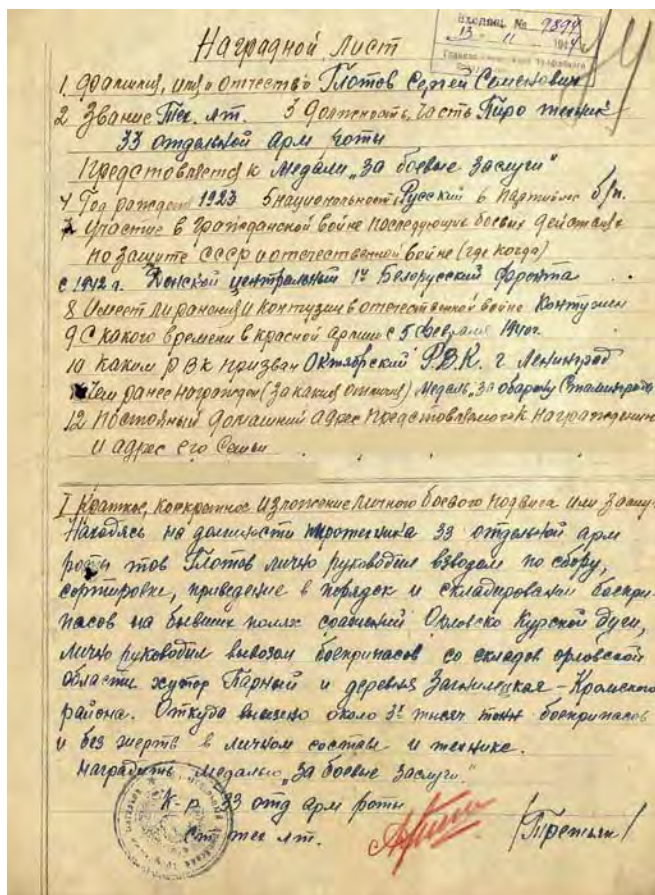 Входящ. № 9894
13 11 194
Наградной лист
1. Фамилия, имя и отчество Глотов Сергей Семенович
2 Звание Тех. лт. 3 Должность, часть Пиротехник
33 отдельной арм роты
Представляется к медали „За боевые заслуги“
4 Год рождения 1923 5 национальность Русский 6 партийность б/п.
7 Участие в гражданской войне последующие боевых действиях
по защите СССР и отечественной войне (где когда)
с 1942 г. Донской центральный 1й Белорусский фронта
8 Имеет ли ранения и контузии в отечественной войне Контужен
9 С какого времени в красной армии с 5 февраля 1940г.
10 каким РВК призван Октябрский Р.В.К. г Ленинград
Чем ранее награжден (за какие отличия) Медаль „За оборону Сталинграда
12 Постоянный домашний адрес представляемого к награждению
и адрес его семьи
I Краткое, конкретное изложение личного боевого подвига или заслуг
Находясь на должности пиротехника 33 отдельной арм
роты тов Глотов лично руководил взводом по сбору,
сортировке, приведение в порядок и складировании боепри-
пасов на бывших полях сражений Орловско Курской дуги,
лично руководил вывозом боеприпасов со складов орловской
области хутор Парный и деревня Загнилецкая – Кромского
района. Откуда вывезено около 3х тысяч тонн боеприпасов
и без жертв в личном составе и технике.
Наградить медалью „За боевые заслуги“.
К-р 33 отд арм роты
Ст тех лт. /Третьяк/